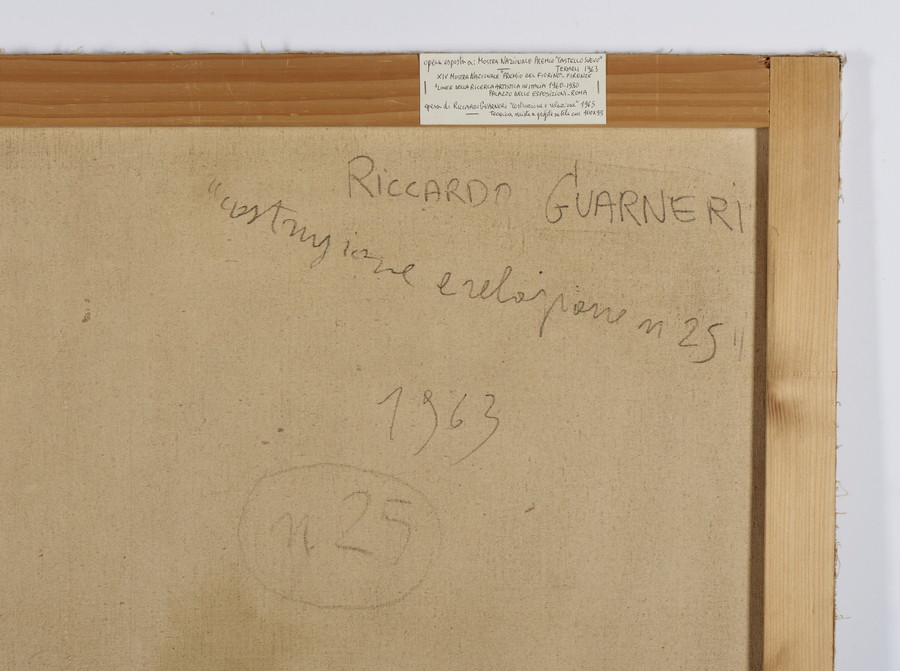 opera esposta a: MOSTRA NAZIONALE PREMIO "CASTELLO SVEVO"
TERMOLI 1963
XIV MOSTRA NAZIONALE PREMIO DEL FIORINO - FIRENZE
"LINEE DELLA RICERCA ARTISTICA IN ITALIA 1960-1980
PALAZZO DELLE ESPOSIZIONI - ROMA
opera di RICCARDO GUARNERI "costruzione e relazione" 1963
Tecnica mista e grafite su tela cm
RICCARDO GUARNERI
"costruzione e relazione n 25"
1963
n 25